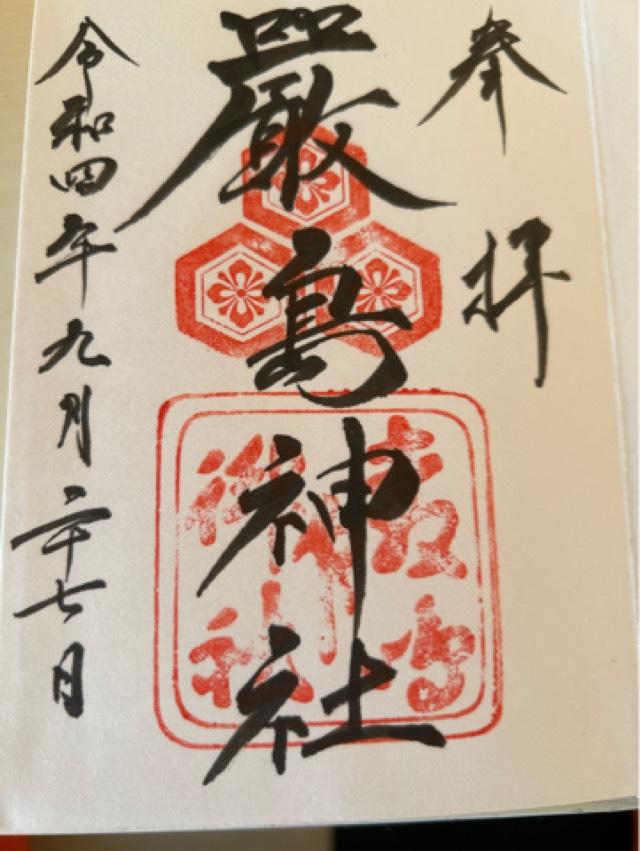 奉拝
嚴島神社
令和四年九月二十七日